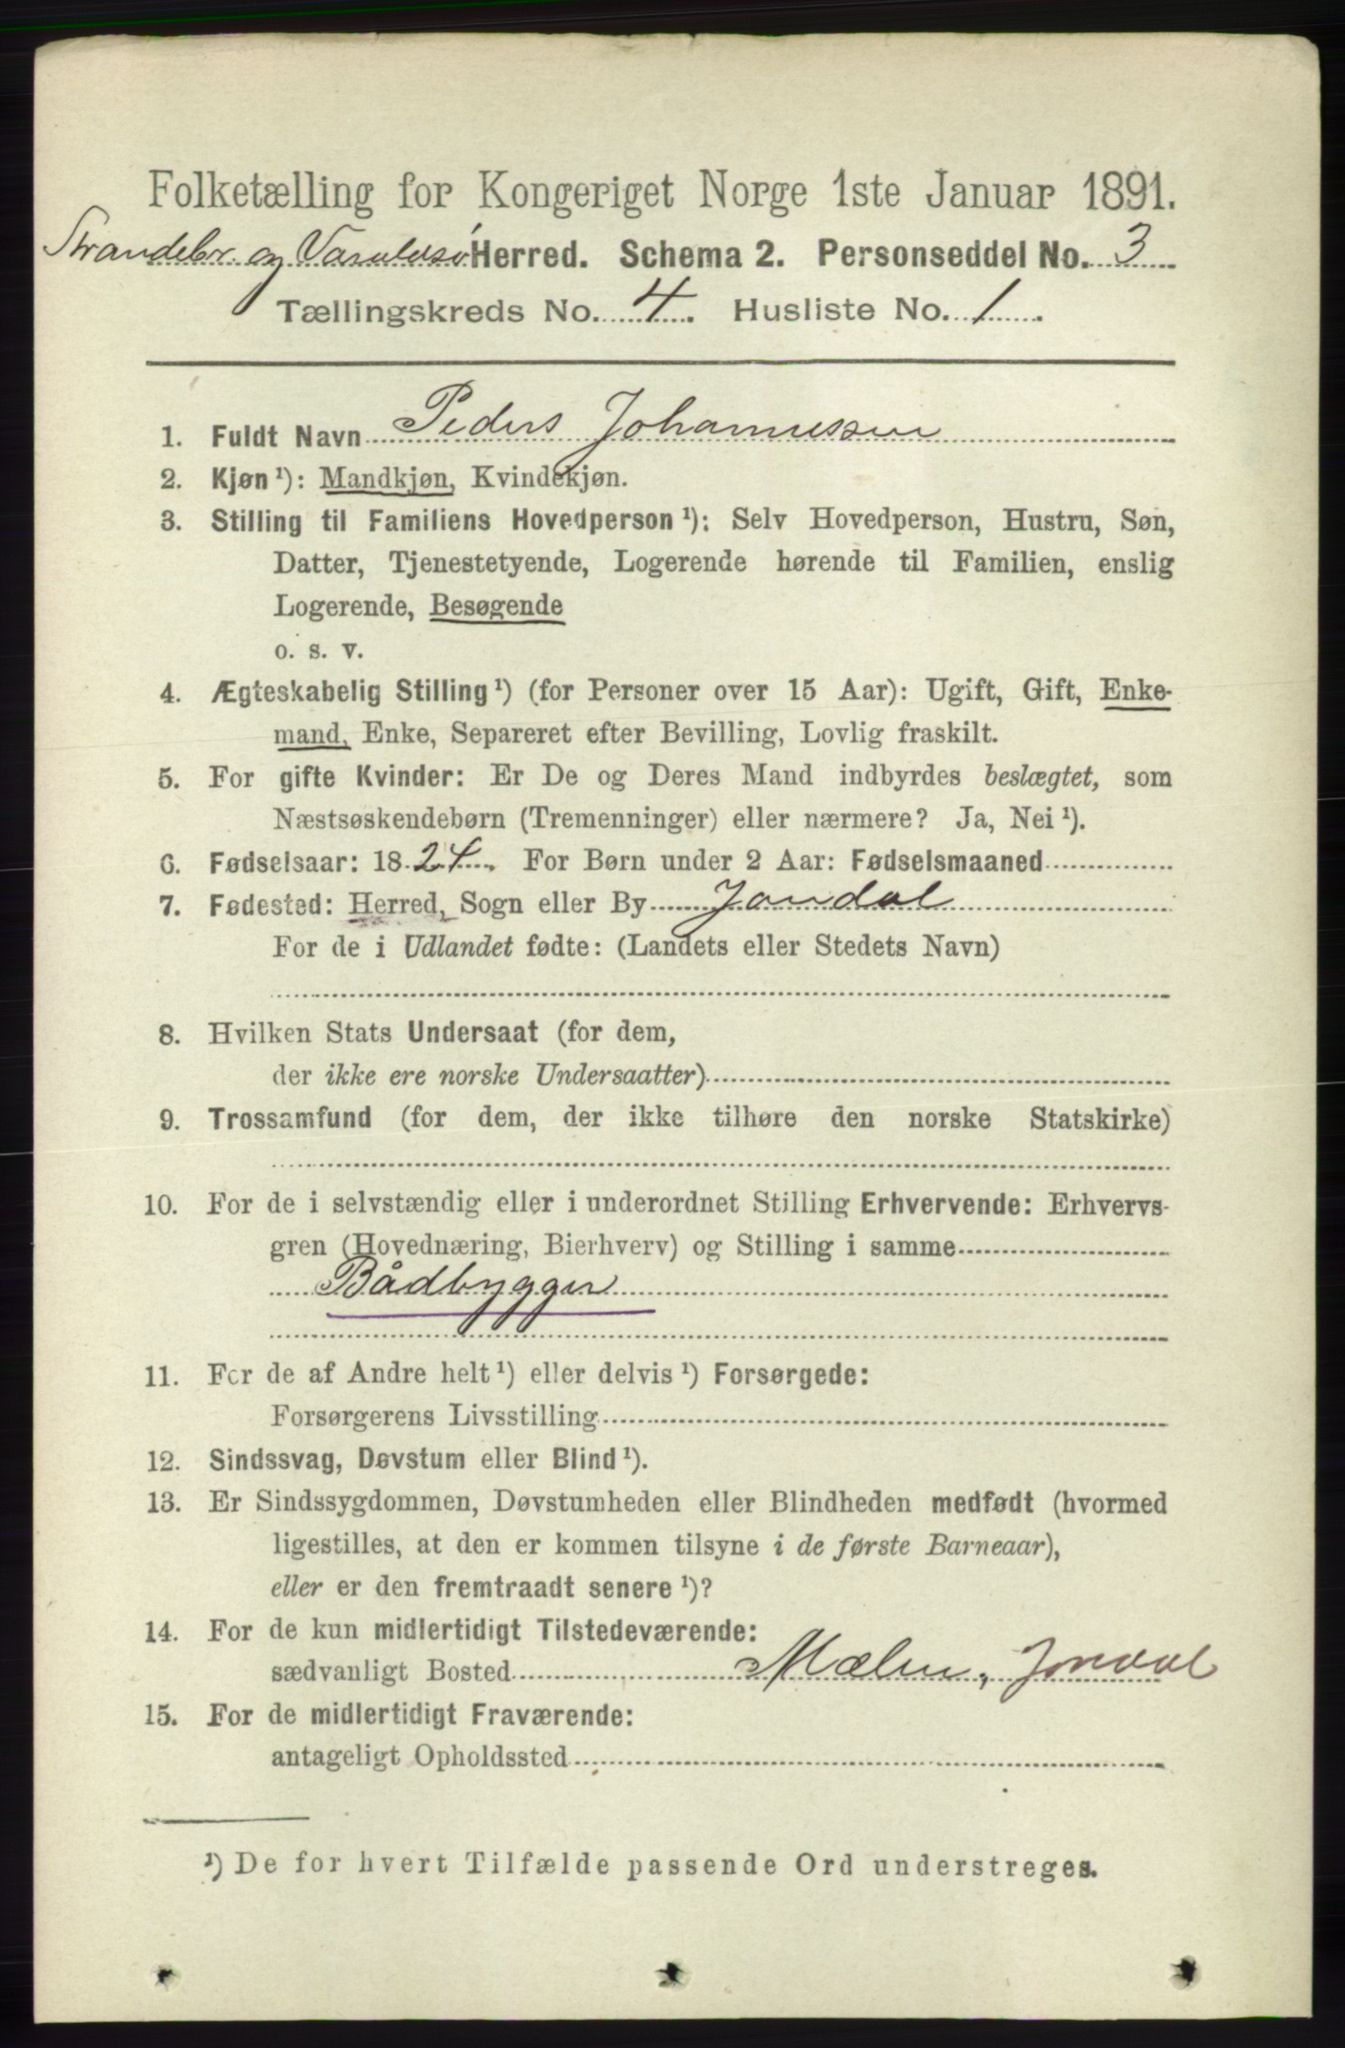 Folketælling for Kongeriget Norge 1ste Januar 1891.
Strandebr. og Varaldsø Herred. Schema 2. Personseddel No. 3
Tællingskreds No. 4. Husliste No. 1.
1. Fuldt Navn Peders Johannessen
2. Kjøn¹): Mandkjøn, Kvindekjøn.
3. Stilling til Familiens Hovedperson¹): Selv Hovedperson, Hustru, Søn,
Datter, Tjenestetyende, Logerende hørende til Familien, enslig
Logerende, Besøgende
o. s. v.
4. Ægteskabelig Stilling¹) (for Personer over 15 Aar): Ugift, Gift, Enke-
mand, Enke, Separeret efter Bevilling, Lovlig fraskilt.
5. For gifte Kvinder: Er De og Deres Mand indbyrdes beslægtet, som
Næstsøskendebørn (Tremenninger) eller nærmere? Ja, Nei¹).
6. Fødselsaar: 1824. For Børn under 2 Aar: Fødselsmaaned
7. Fødested: Herred, Sogn eller By Jondal
For de i Udlandet fødte: (Landets eller Stedets Navn)
8. Hvilken Stats Undersaat (for dem,
der ikke ere norske Undersaatter)
9. Trossamfund (for dem, der ikke tilhøre den norske Statskirke)
10. For de i selvstændig eller i underordnet Stilling Erhvervende: Erhvervs-
gren (Hovednæring, Bierhverv) og Stilling i samme
Bådbygger
11. For de af Andre helt¹) eller delvis¹) Forsørgede:
Forsørgerens Livsstilling
12. Sindssvag, Døvstum eller Blind¹).
13. Er Sindssygdommen, Døvstumheden eller Blindheden medfødt (hvormed
ligestilles, at den er kommen tilsyne i de første Barneaar),
eller er den fremtraadt senere¹)?
14. For de kun midlertidigt Tilstedeværende:
sædvanligt Bosted Mælen, Jondal
15. For de midlertidigt Fraværende:
antageligt Opholdssted
¹) De for hvert Tilfælde passende Ord understreges.